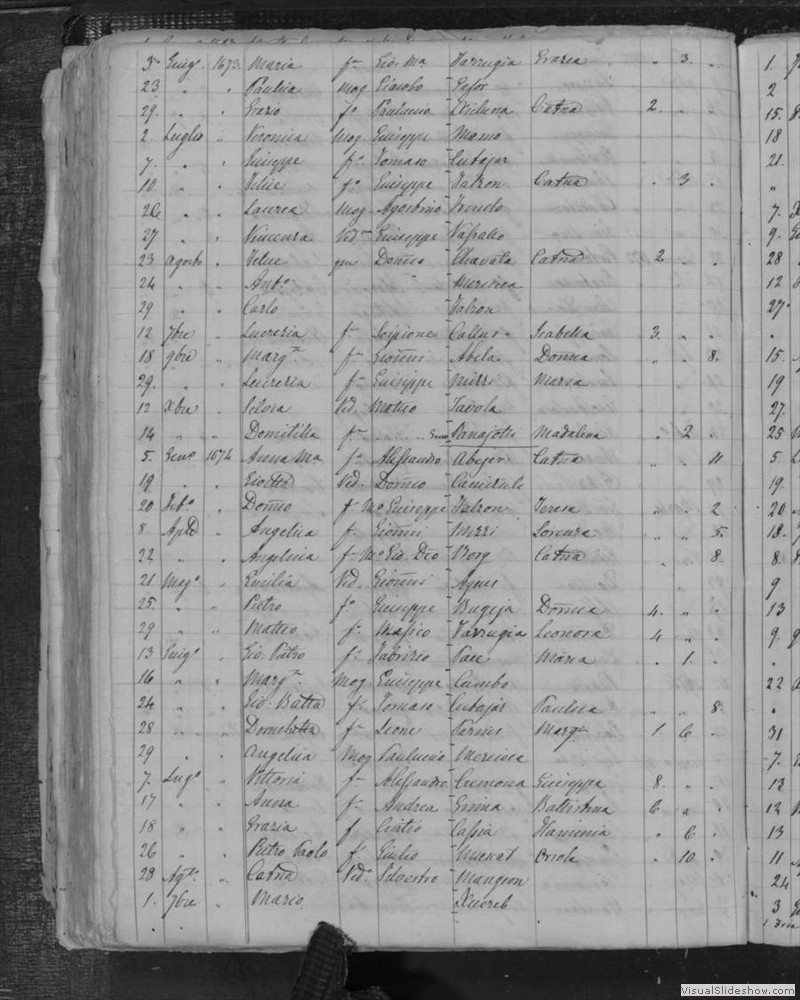 3 Giug. 1673. Maria fa Gio: Ma Farrugia Grazia " 3. "
23 " " Paulica mog Giacobo
29. " " Grazio fo Pauluccio Catna 2. " "
2 Luglio " Veronica Mog Giuseppe Mamo
7. " " Giuseppe fo Tomaso Cutajar
10 " " Felice fo Giuseppe Falzon Catna . 3 .
26 " " Laurea Mog Agostino
27 " " Vincenza Vid Giuseppe Vassallo
23 agosto . Felice Domco Chavola Catna 2 . .
24 " " Anto Mercieca
29 " " Carlo Falzon
12 7bre " Lucrezia fa Scipione Callus Isabella 3. " .
18 9bre " Margta fa Gionni Abela Domca " " 8.
29. " " Lucrezia fa Giuseppe Mizzi Maria
12 Xbre " Silvia Vid. Matteo
14 " " Domitilla fa Panajotti Madalena " 2 .
5. Geno 1674 Anna Ma fa Alessandro Abejer Catna " " 11
19 " " Vid. Domco
20 Febo " Domco f. Mo Giuseppe Falzon Teresa " " 2
8. Aple " Angelica fa Gionni Mizzi Lorenza " " 5.
22 " " Angelica f. Mo Gio. Dco Borg Catna " " 8
21 Mago " Emilia Vid Gionni Agius
25. " " Pietro fo Giuseppe Bugeja Domca 4. " .
29 " " Matteo fo Masico Farrugia Leonora 4 " .
13 Giugo " Gio. Pietro fo Fabrizio Pace Maria . 1. .
16 " " Margta Mog Giuseppe Cumbo
24 " " Gio: Batta fo Tomaso Cutajar Paulica " " 8.
28 " " fa Leone Margta 1. 6 .
29 " " Angelica Mog Pauluccio Mercieca
7. Lugo " Vittoria fa Alessandro Cremona Giuseppa 8 " .
17 " " Anna fa Andrea Battistina 6 " .
18 " " Grazia f Cintio Cassia Flaminia " 6 .
26 " " Pietro Paolo fo Giulio Muscat Oriola . 10 .
28 Agto " Catna Vida Silvestro Mangion
1. 7bre " Mario Xuereb
1.
2
15.
18
21.
"
7.
9.
28
12
27
15.
19
27.
25
5.
19.
20
18.
8.
9
13
9.
.
22
"
31
7.
13
12
13
11
24
3
VisualSlideshow.com